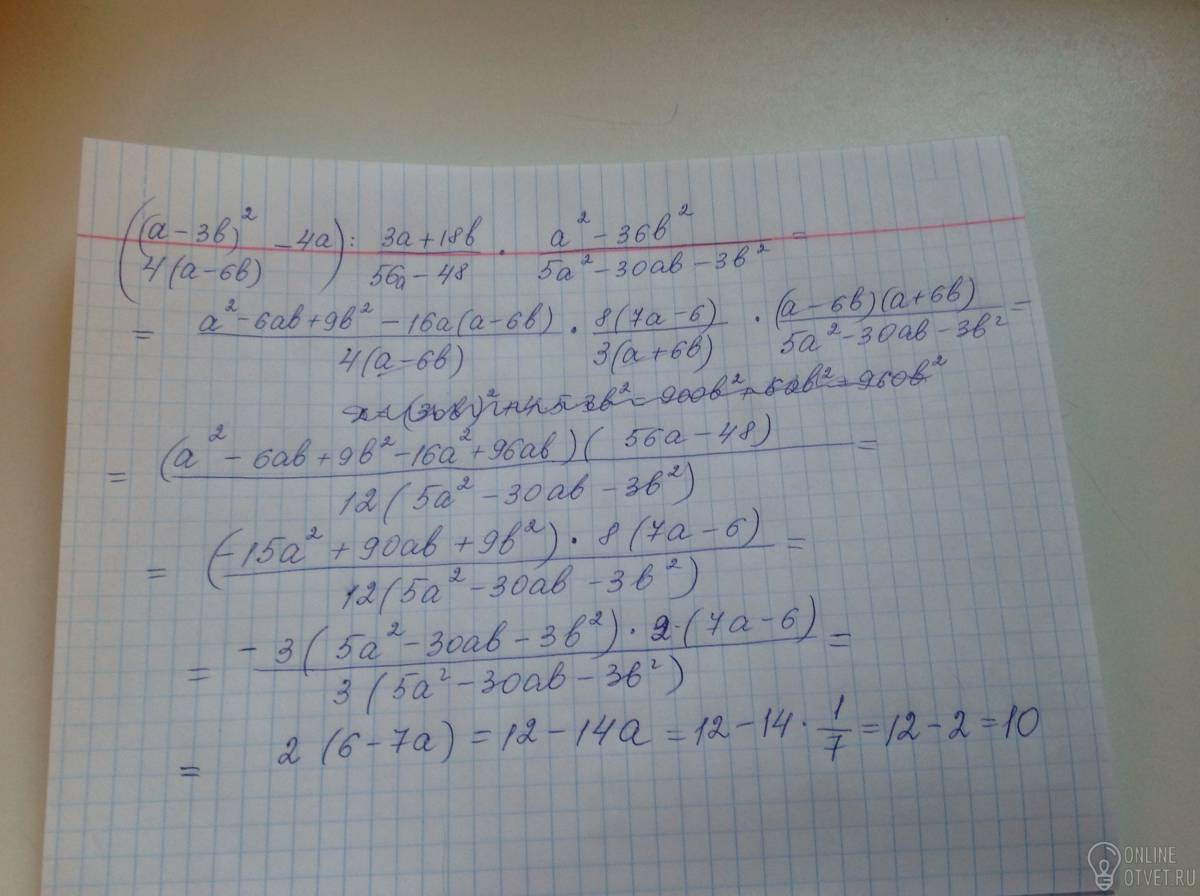 ((a-3b)²/4(a-6b) -4a): 3a+18b/56a-48 · a²-36b²/5a²-30ab-3b² =
= a²-6ab+9b²-16a(a-6b)/4(a-6b) · 8(7a-6)/3(a+6b) · (a-6b)(a+6b)/5a²-30ab-3b² =
= (a²-6ab+9b²-16a²+96ab)(56a-48)/12(5a²-30ab-3b²) =
= (-15a²+90ab+9b²)·8(7a-6)/12(5a²-30ab-3b²) =
= -3(5a²-30ab-3b²)·2·(7a-6)/3(5a²-30ab-3b²) =
= 2(6-7a)=12-14a=12-14·1/7=12-2=10
ONLINE
OTVET.RU